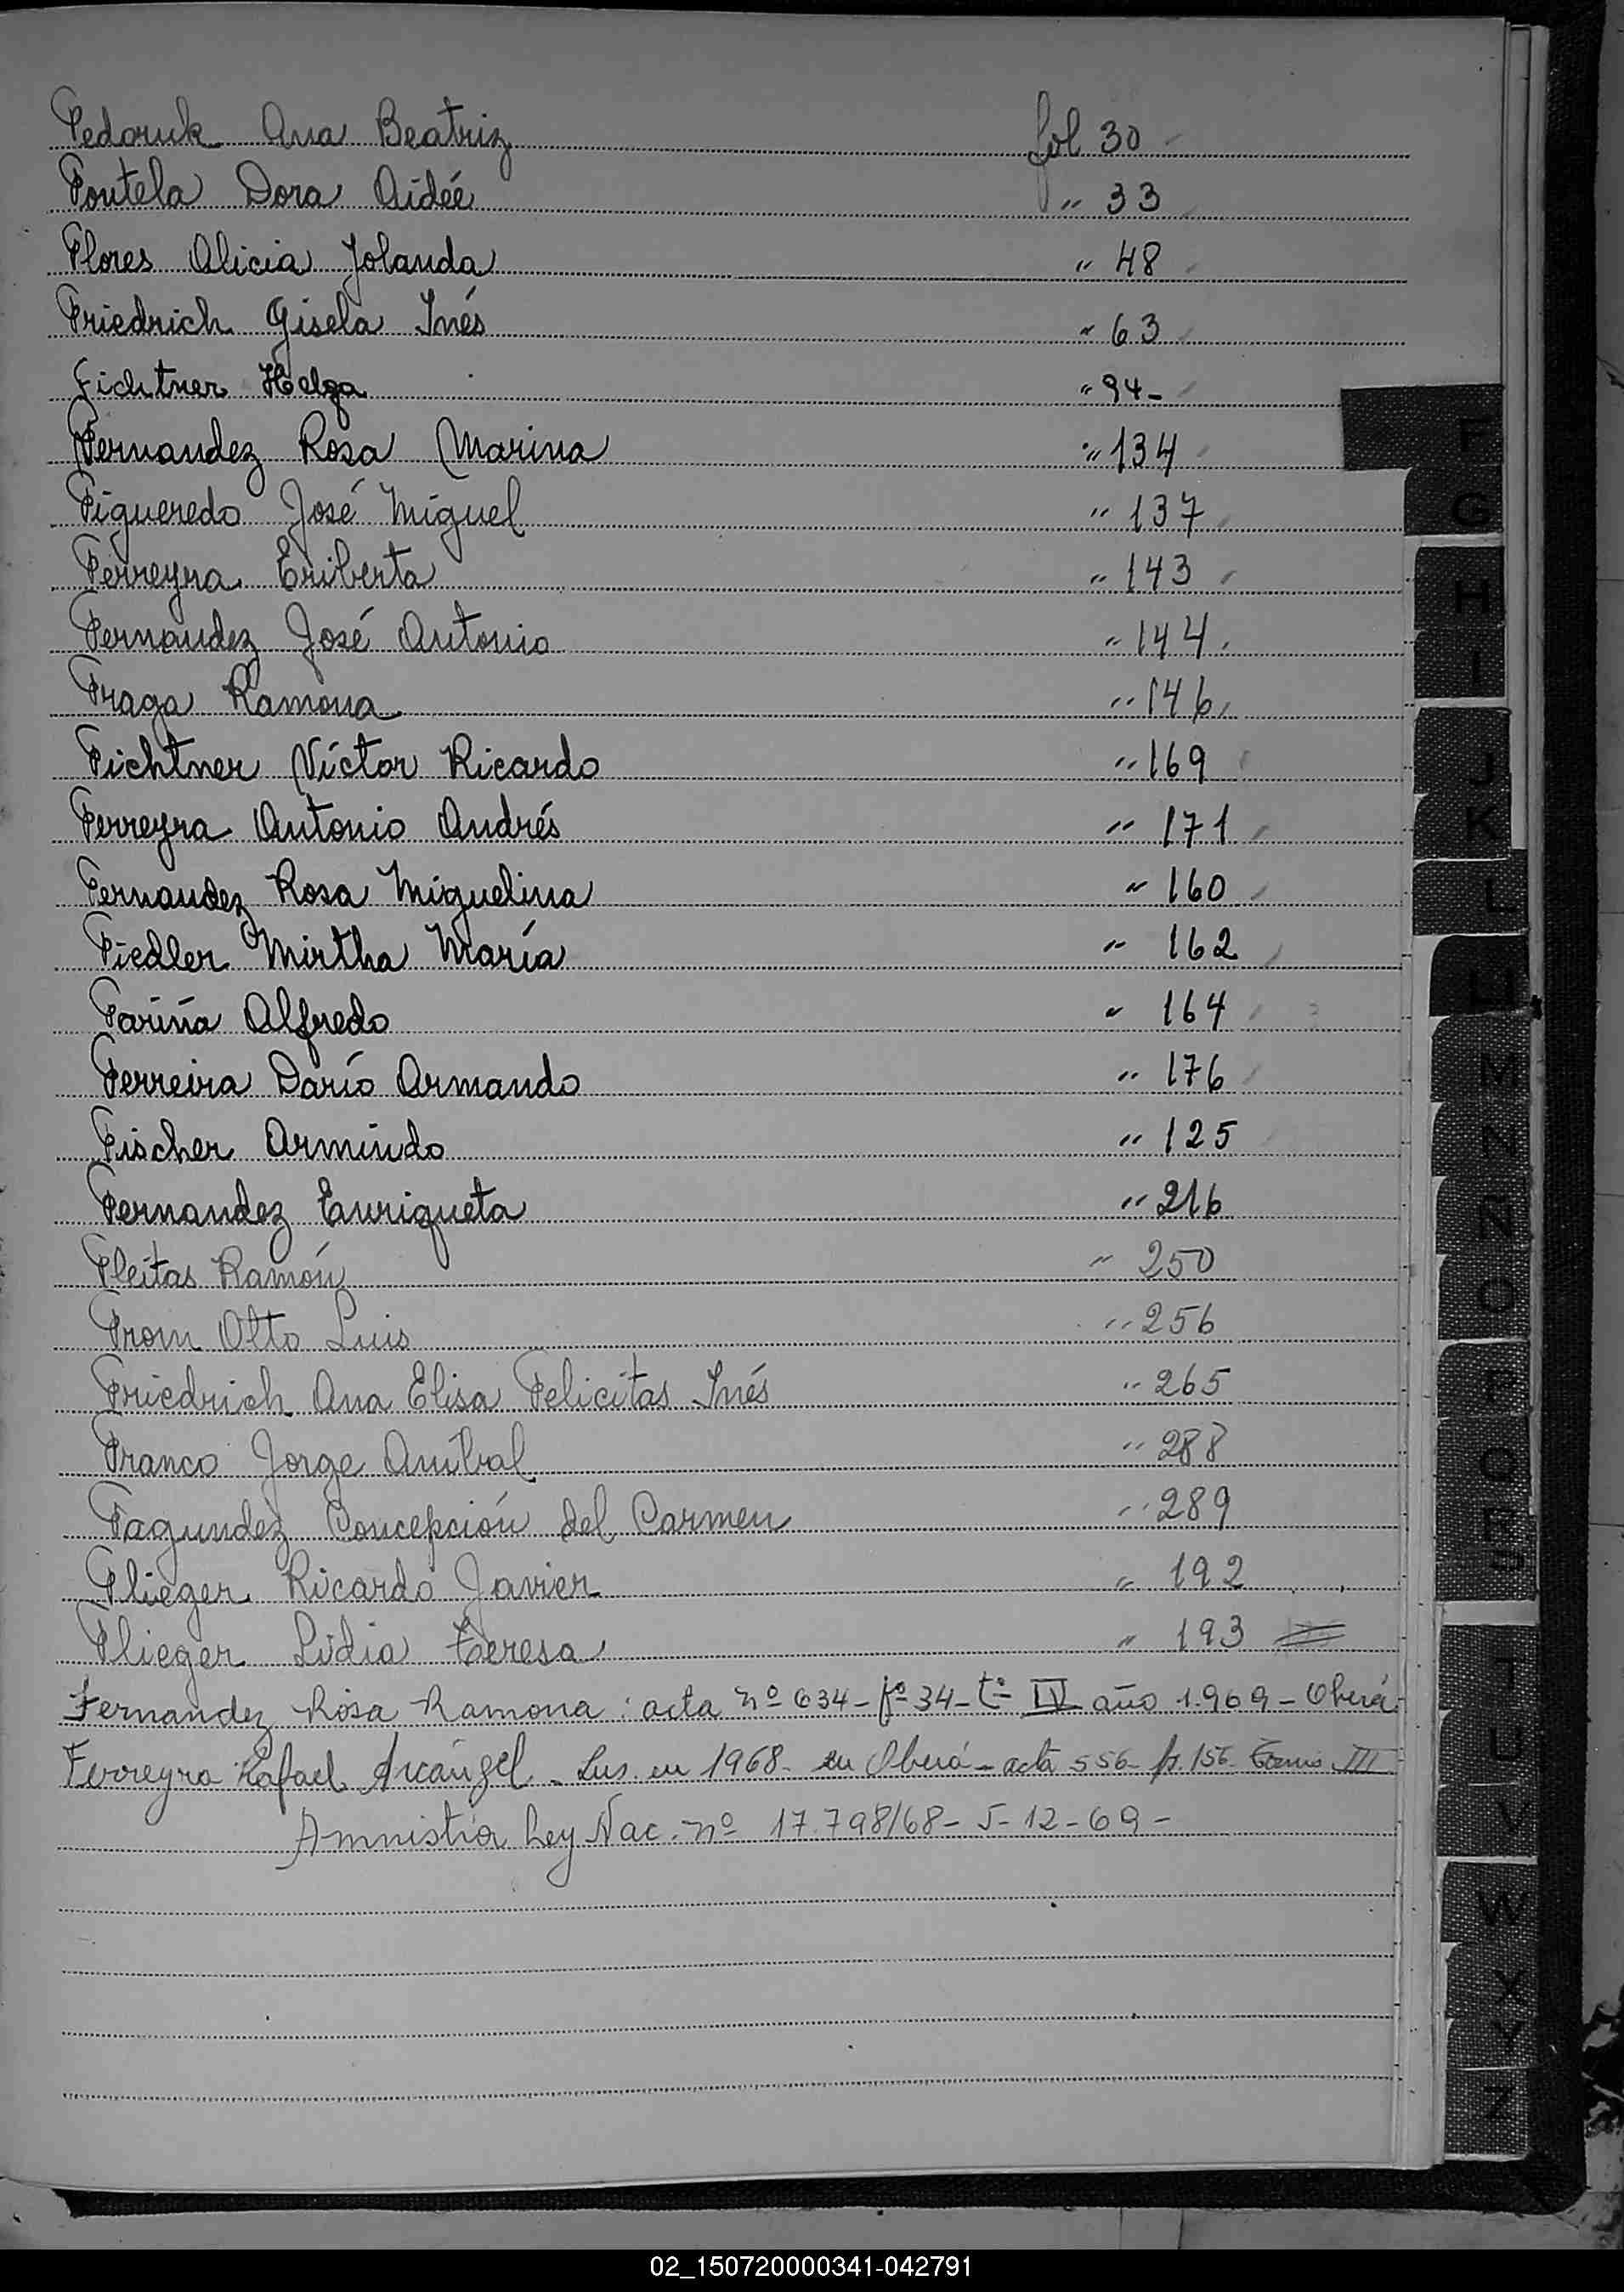 Fedoruk Ana Beatriz fol 30
Fontela Dora Aidée " 33
Flores Alicia Jolanda " 48
Friedrich Gisela Inés " 63
Fichtner Helga " 94-
Fernandez Rosa Marina " 134
Figueredo José Miguel " 137
Ferreyra Eriberta " 143
Fernandez José Antonio " 144
Fraga Ramona " 146
Fichtner Víctor Ricardo " 169
Ferreyra Antonio Andrés " 171
Fernandez Rosa Miguelina " 160
Fiedler Mirtha María " 162
Fariña Alfredo " 164
Ferreira Darío Armando " 176
Fischer Armindo " 125
Fernandez Enriqueta " 216
Fleitas Ramón " 250
From Otto Luis " 256
Friedrich Ana Elisa Felicitas Inés " 265
Franco Jorge Aníbal " 288
Fagundez Concepción del Carmen " 289
Flieger Ricardo Javier " 192
Flieger Lidia Teresa " 193
Fernandez Rosa Ramona : acta nº 634 - fº 34 - tº IV año 1.969 - Oberá
Ferreyra Rafael Arcángel - Ins. en 1968 - en Oberá - acta 556 - fº. 156 - Tomo III
Amnistía Ley Nac. nº 17.798/68 - 5-12-69 -
F
G
H
I
J
K
L
LL
M
N
Ñ
O
P
Q
R
S
T
U
V
W
X
Y
Z
02_150720000341-042791